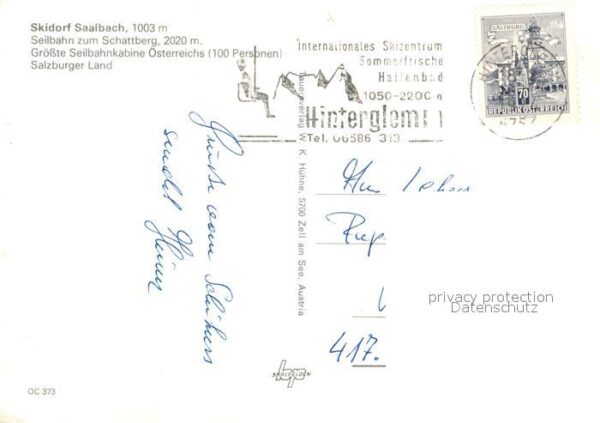 Skidorf Saalbach, 1003 m
Seilbahn zum Schattberg, 2020 m.
Größte Seilbahnkabine Österreichs (100 Personen)
Salzburger Land
Internationales Skizentrum
Sommerfrische
Hallenbad
1050-2200 m
Hinterglemm
Tel. 06586 313
SALZBURG
70
REPUBLIK ÖSTERREICH
5752
Grüße vom
sendet
Bauerverlag W. K. Hühne, 5700 Zell am See, Austria
417.
privacy protection
Datenschutz
SAALFELDEN
OC 373